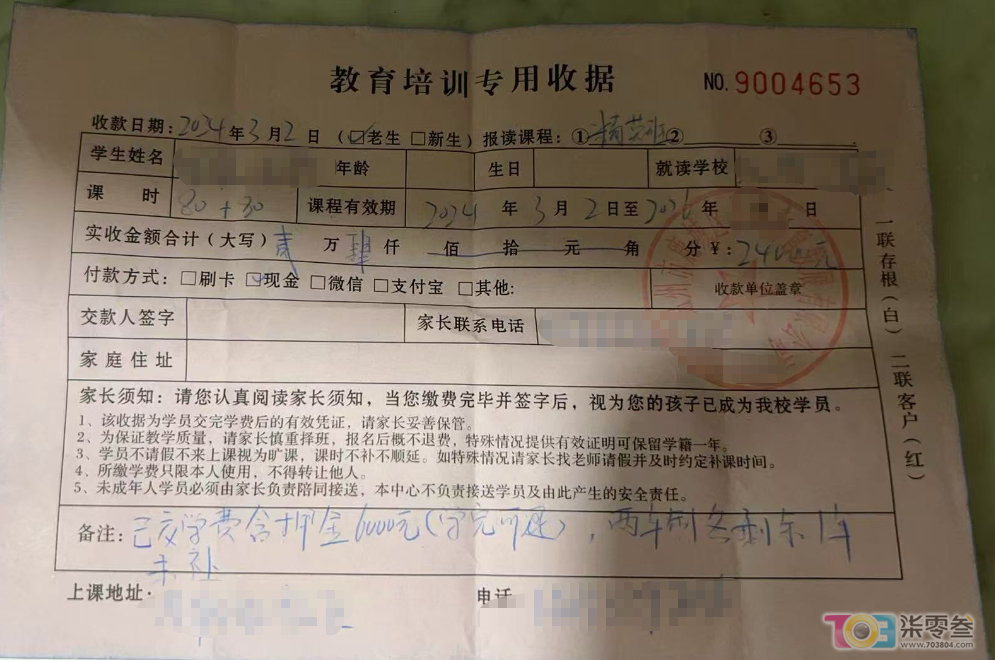 教育培训专用收据
NO. 9004653
收款日期：2024年3月2日（☑老生 □新生）报读课程：①精英班②③
学生姓名 年龄 生日 就读学校
课时 80+80 课程有效期 2024年3月2日至202 年 日
实收金额合计（大写）贰万肆仟 佰 拾 元 角 分 ¥：24000元
付款方式：□刷卡 ☑现金 □微信 □支付宝 □其他：
收款单位盖章
交款人签字 家长联系电话
家庭住址
家长须知：请您认真阅读家长须知，当您缴费完毕并签字后，视为您的孩子已成为我校学员。
1、该收据为学员交完学费后的有效凭证，请家长妥善保管。
2、为保证教学质量，请家长慎重择班，报名后概不退费，特殊情况提供有效证明可保留学籍一年。
3、学员不请假不来上课视为旷课，课时不补不顺延。如特殊情况请家长找老师请假并及时约定补课时间。
4、所缴学费只限本人使用，不得转让他人。
5、未成年人学员必须由家长负责陪同接送，本中心不负责接送学员及由此产生的安全责任。
备注：已交学费含押金6000元（学完可退），两年制各剩余1年
未补
上课地址： 电话
一联存根（白） 二联客户（红）
703 柒零叁
www.703804.com